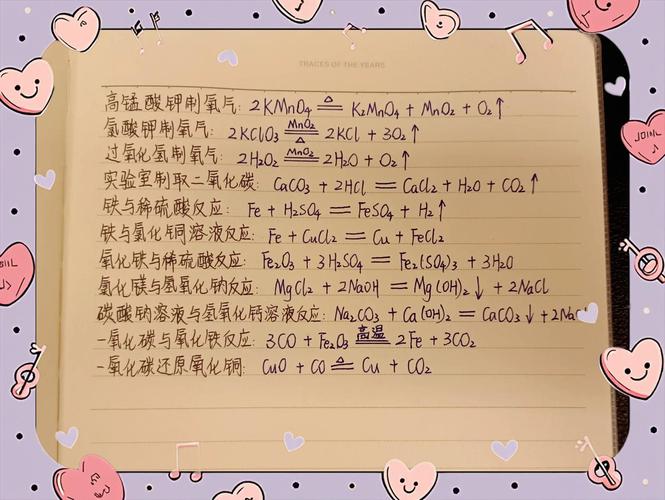 TRACES OF THE YEARS
高锰酸钾制氧气: 2KMnO₄ ≜ K₂MnO₄ + MnO₂ + O₂↑
氯酸钾制氧气: 2KClO₃ MnO₂ ≜ 2KCl + 3O₂↑
过氧化氢制氧气: 2H₂O₂ MnO₂ = 2H₂O + O₂↑
实验室制取二氧化碳: CaCO₃ + 2HCl = CaCl₂ + H₂O + CO₂↑
铁与稀硫酸反应: Fe + H₂SO₄ = FeSO₄ + H₂↑
铁与氯化铜溶液反应: Fe + CuCl₂ = Cu + FeCl₂
氧化铁与稀硫酸反应: Fe₂O₃ + 3H₂SO₄ = Fe₂(SO₄)₃ + 3H₂O
氯化镁与氢氧化钠反应: MgCl₂ + 2NaOH = Mg(OH)₂↓ + 2NaCl
碳酸钠溶液与氢氧化钙溶液反应: Na₂CO₃ + Ca(OH)₂ = CaCO₃↓ +
一氧化碳与氧化铁反应: 3CO + Fe₂O₃ 高温 = 2Fe + 3CO₂
一氧化碳还原氧化铜: CuO + CO ≜ Cu + CO₂